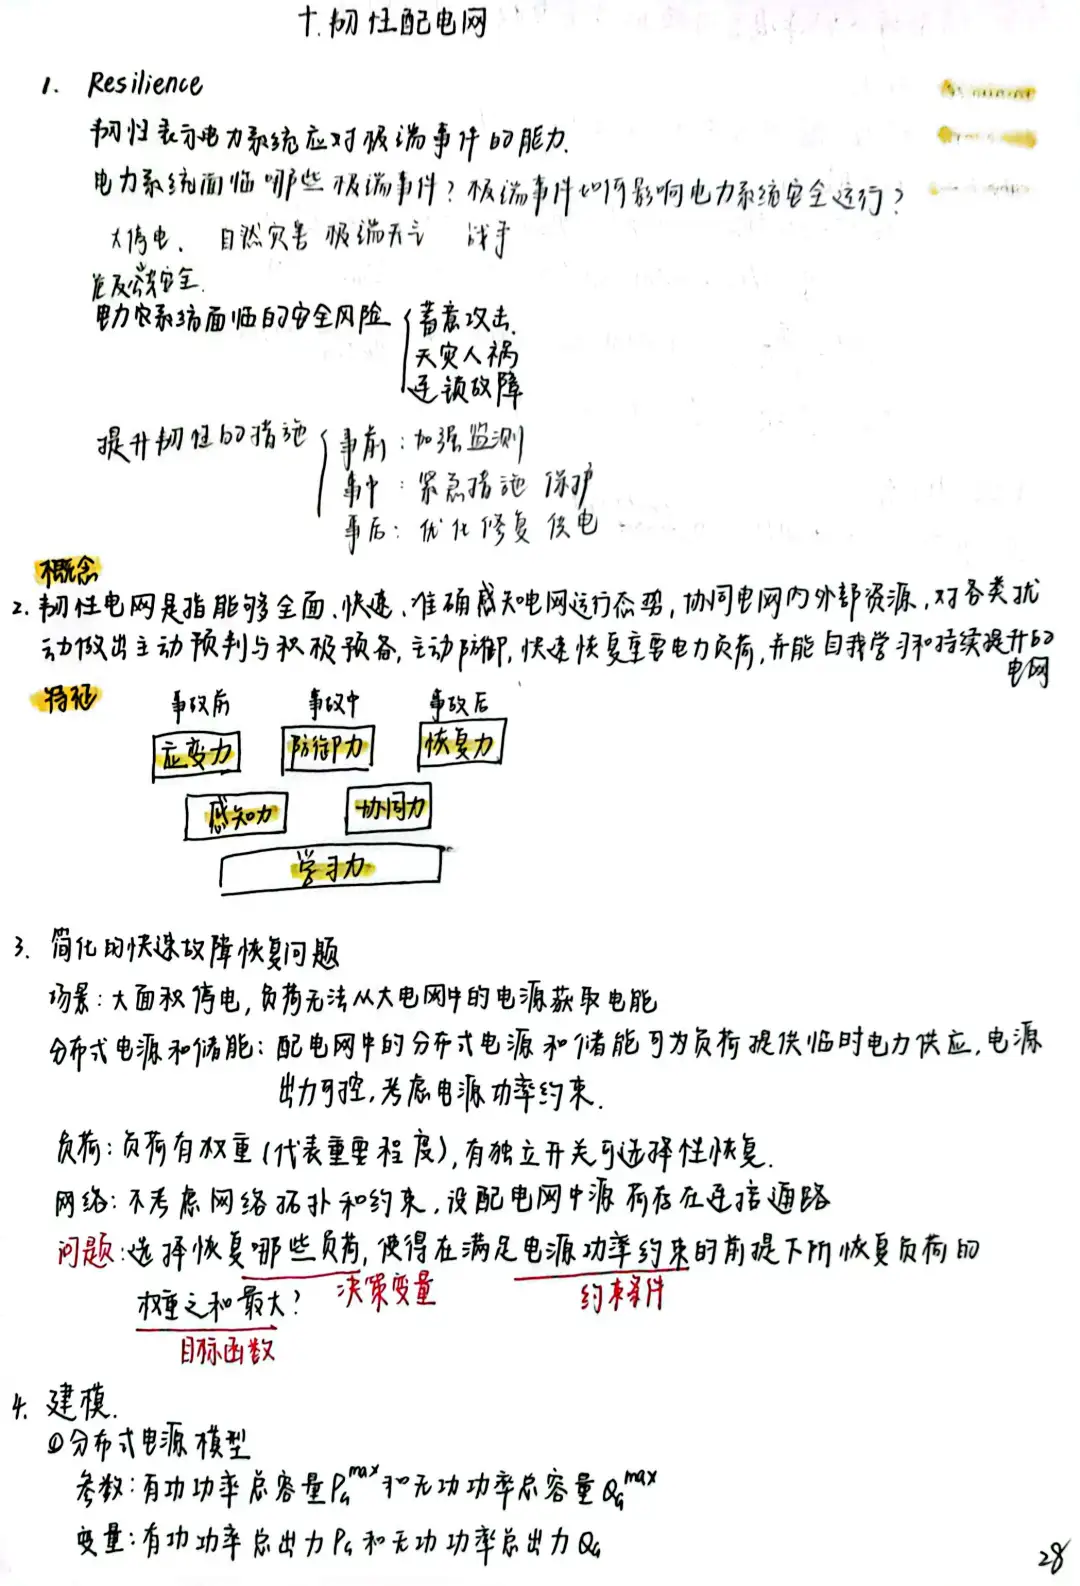 十.韧性配电网
1. Resilience
韧性表示电力系统应对极端事件的能力.
电力系统面临哪些极端事件?极端事件如何影响电力系统安全运行?
大停电、 自然灾害 极端天气 战争
危及公共安全.
电力系统面临的安全风险 { 蓄意攻击.
天灾人祸
连锁故障
提升韧性的措施 { 事前:加强监测
事中:紧急措施 保护
事后:优化修复 供电
概念
2. 韧性电网是指能够全面、快速、准确感知电网运行态势,协同电网内外部资源,对各类扰
动做出主动预判与积极预备,主动防御,快速恢复重要电力负荷,并能自我学习和持续提升的
电网
特征
事故前 事故中 事故后
应变力 防御力 恢复力
感知力 协同力
学习力
3. 简化的快速故障恢复问题
场景:大面积停电,负荷无法从大电网中的电源获取电能
分布式电源和储能:配电网中的分布式电源和储能可为负荷提供临时电力供应,电源
出力可控,考虑电源功率约束.
负荷:负荷有权重(代表重要程度),有独立开关可选择性恢复.
网络:不考虑网络拓扑和约束,设配电网中源荷存在连接通路
问题:选择恢复哪些负荷,使得在满足电源功率约束的前提下所恢复负荷的
决策变量 约束条件
权重之和最大?
目标函数
4. 建模.
①分布式电源模型
参数:有功功率总容量P_G^max和无功功率总容量Q_G^max
变量:有功功率总出力P_G和无功功率总出力Q_G
28